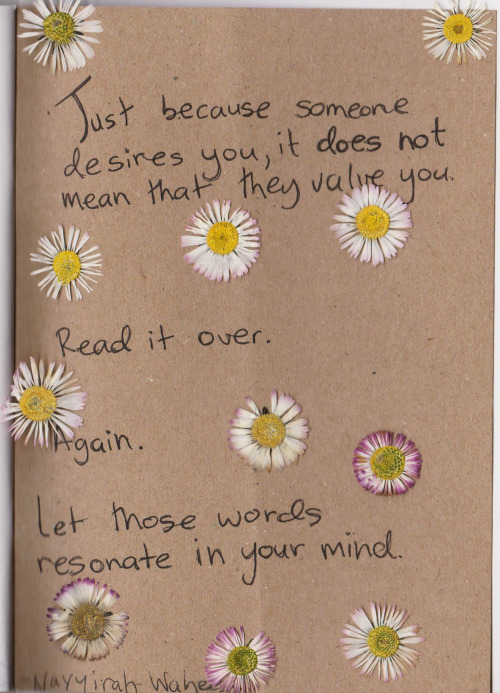 Just because someone
desires you, it does not
mean that they value you.
Read it over.
Again.
Let those words
resonate in your mind.
Nayyirah Wahe